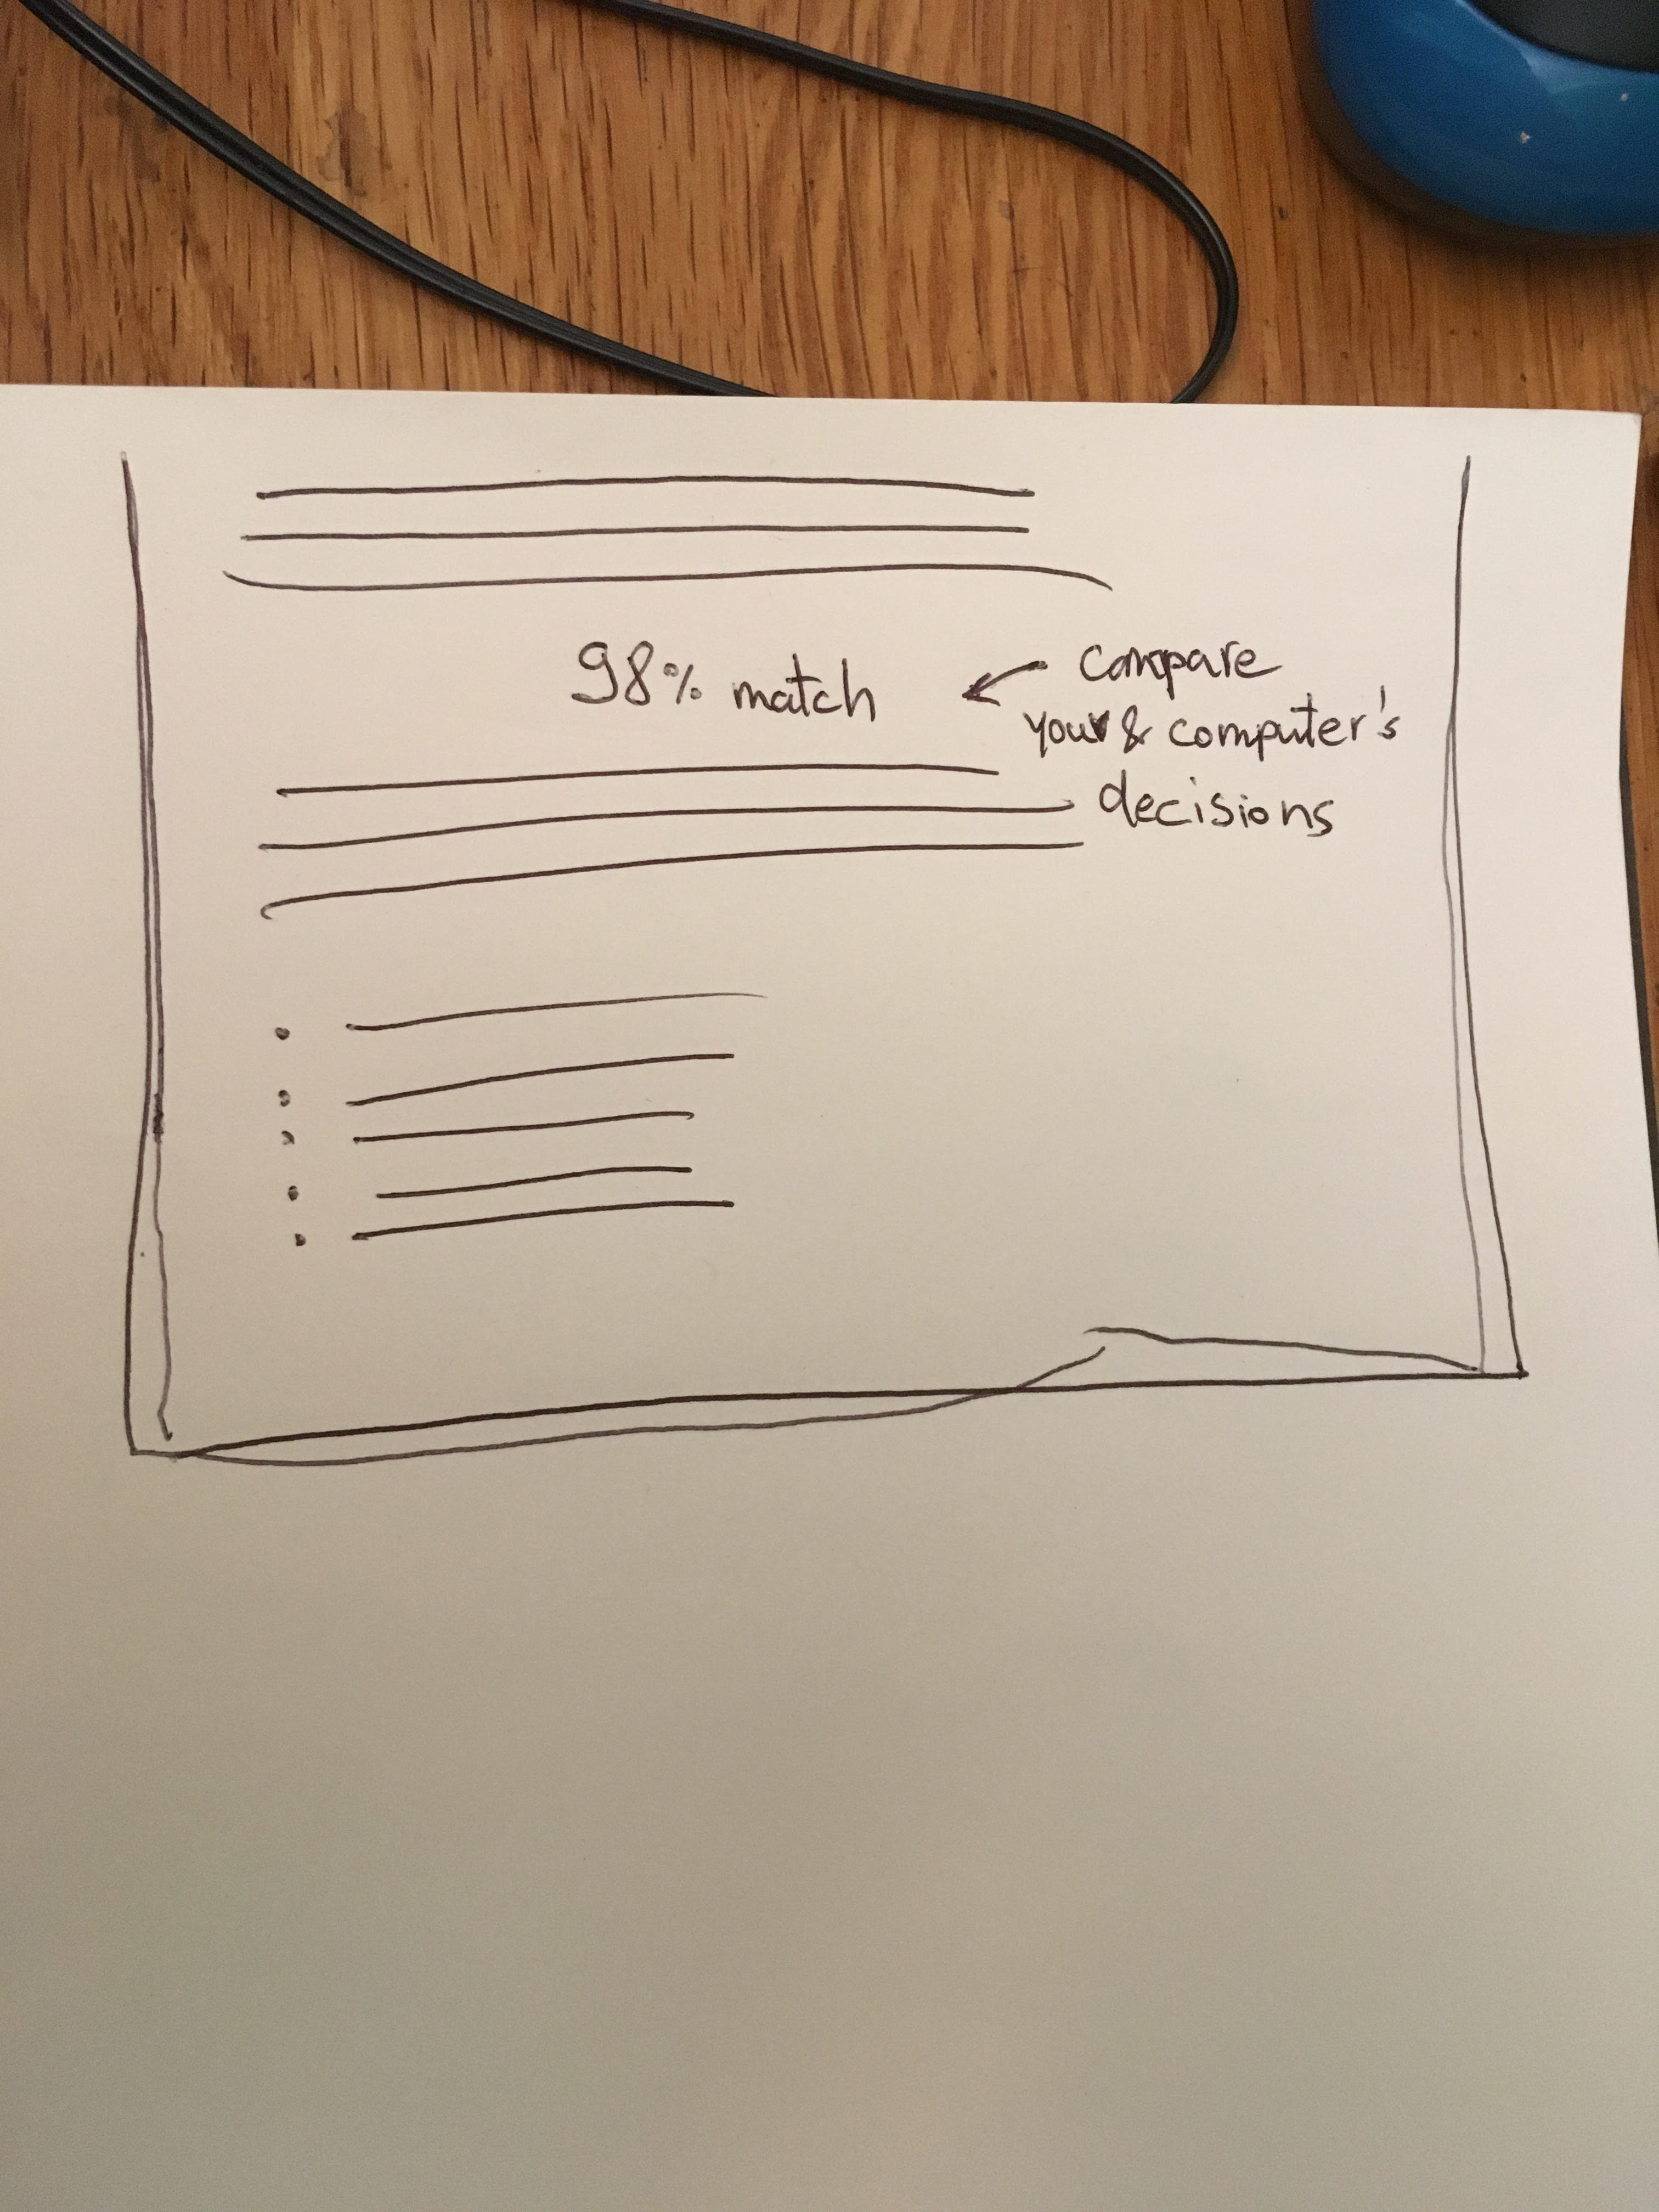 98% match
compare
your & computer's
decisions